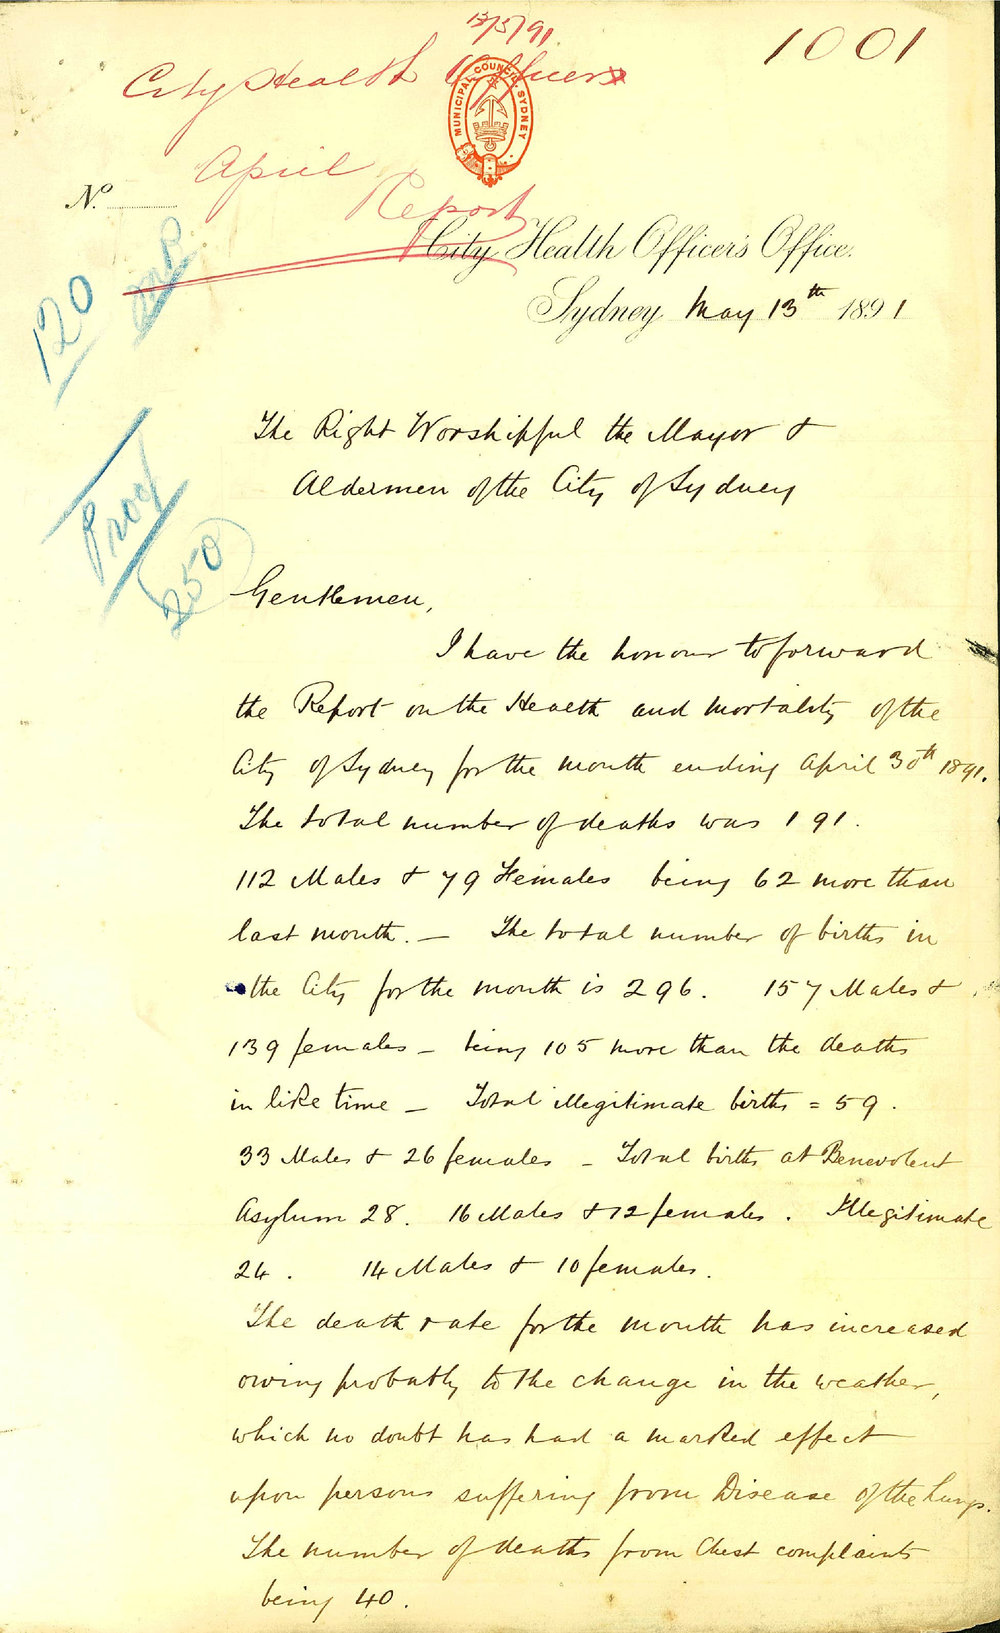 13/5/91
1001
City Health Officers
MUNICIPAL COUNCIL SYDNEY
April
Report
No.
City Health Officer's Office.
Sydney May 13th 1891
120
Proof
250
The Right Worshipful the Mayor &
Aldermen of the City of Sydney
Gentlemen,
I have the honour to forward
the Report on the Health and mortality of the
City of Sydney for the month ending April 30th 1891.
The total number of deaths was 191.
112 Males & 79 Females being 62 more than
last month. — The total number of births in
the City for the month is 296. 157 Males &
139 females — being 105 more than the deaths
in like time — Total illegitimate births = 59.
33 Males & 26 females — Total births at Benevolent
Asylum 28. 16 Males & 12 females. Illegitimate
24. 14 Males & 10 females.
The death rate for the month has increased
owing probably to the change in the weather,
which no doubt has had a marked effect
upon persons suffering from Disease of the Lungs.
The number of deaths from Chest complaints
being 40.